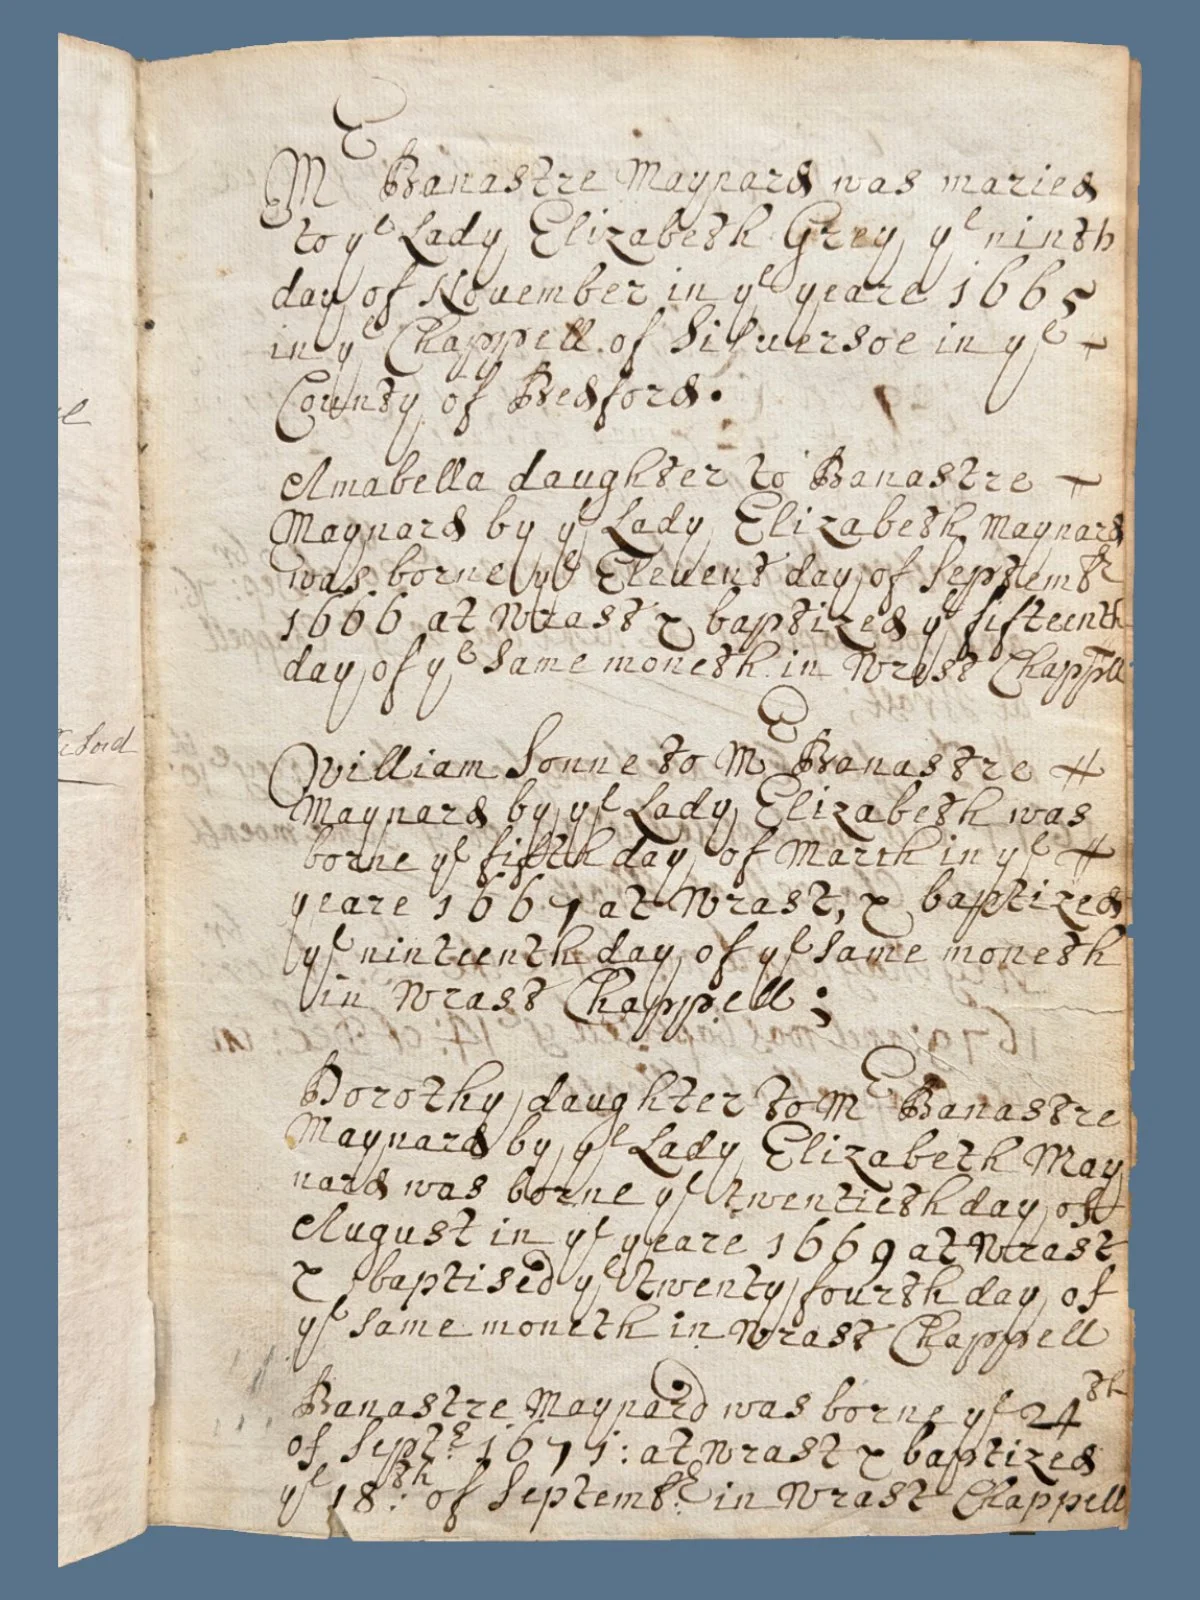 Mr Banastre Maynard was maried
to ye Lady Elizabeth Grey ye ninth
day of Nouember in ye yeare 1665
in ye Chappell of Siluersoe in ye
County of Bedford.
Amabella daughter to Banastre
Maynard by ye Lady Elizabeth Maynard
was borne ye Eleuent day of Septembr
1666 at Wrast & baptized ye fifteenth
day of ye same moneth in Wrast Chappell
William Sonne to Mr Banastre
Maynard by ye Lady Elizabeth was
borne ye fifth day of March in ye
yeare 1667 at Wrast, & baptized
ye ninteenth day of ye same moneth
in Wrast Chappell;
Dorothy daughter to Mr Banastre
Maynard by ye Lady Elizabeth May
nard was borne ye twentieth day of
August in ye yeare 1669 at Wrast
& baptised ye twenty fourth day of
ye same moneth in Wrast Chappell
Banastre Maynard was borne ye 24th
of Septe: 1671: at Wrast & baptized
ye 18th: of Septembr: in Wrast Chappell
Lord